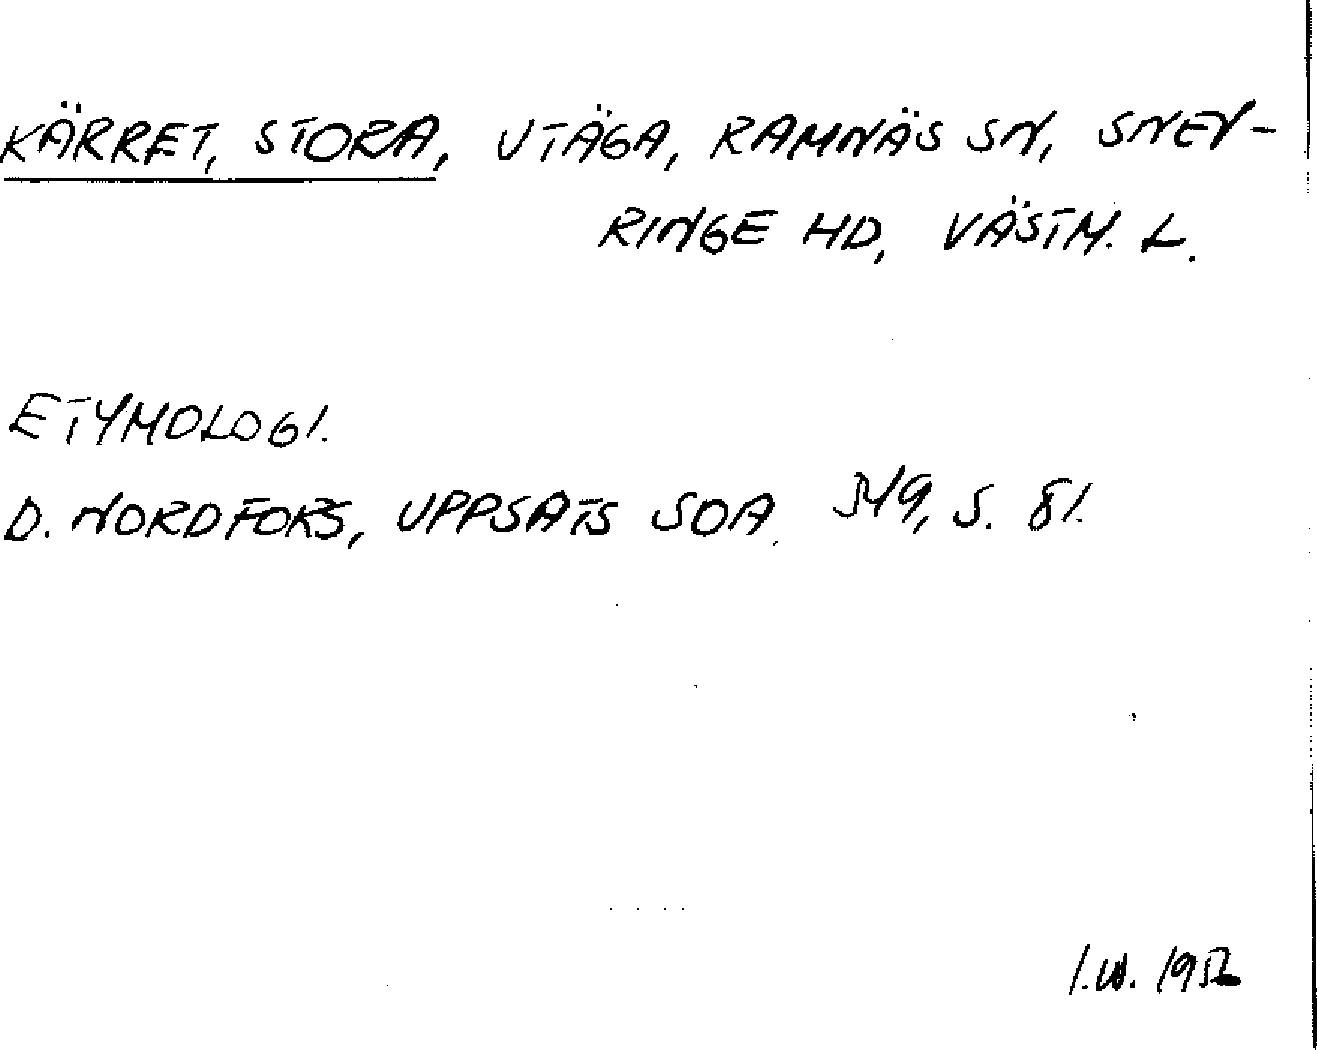 KÄRRET, STORA, UTÄGA, RAMNÄS SN, SNEV-
RINGE HD, VÄSTM. L.
ETYMOLOGI.
D. NORDFORS, UPPSATS SOA 349, S. 81.
I.W. 1952